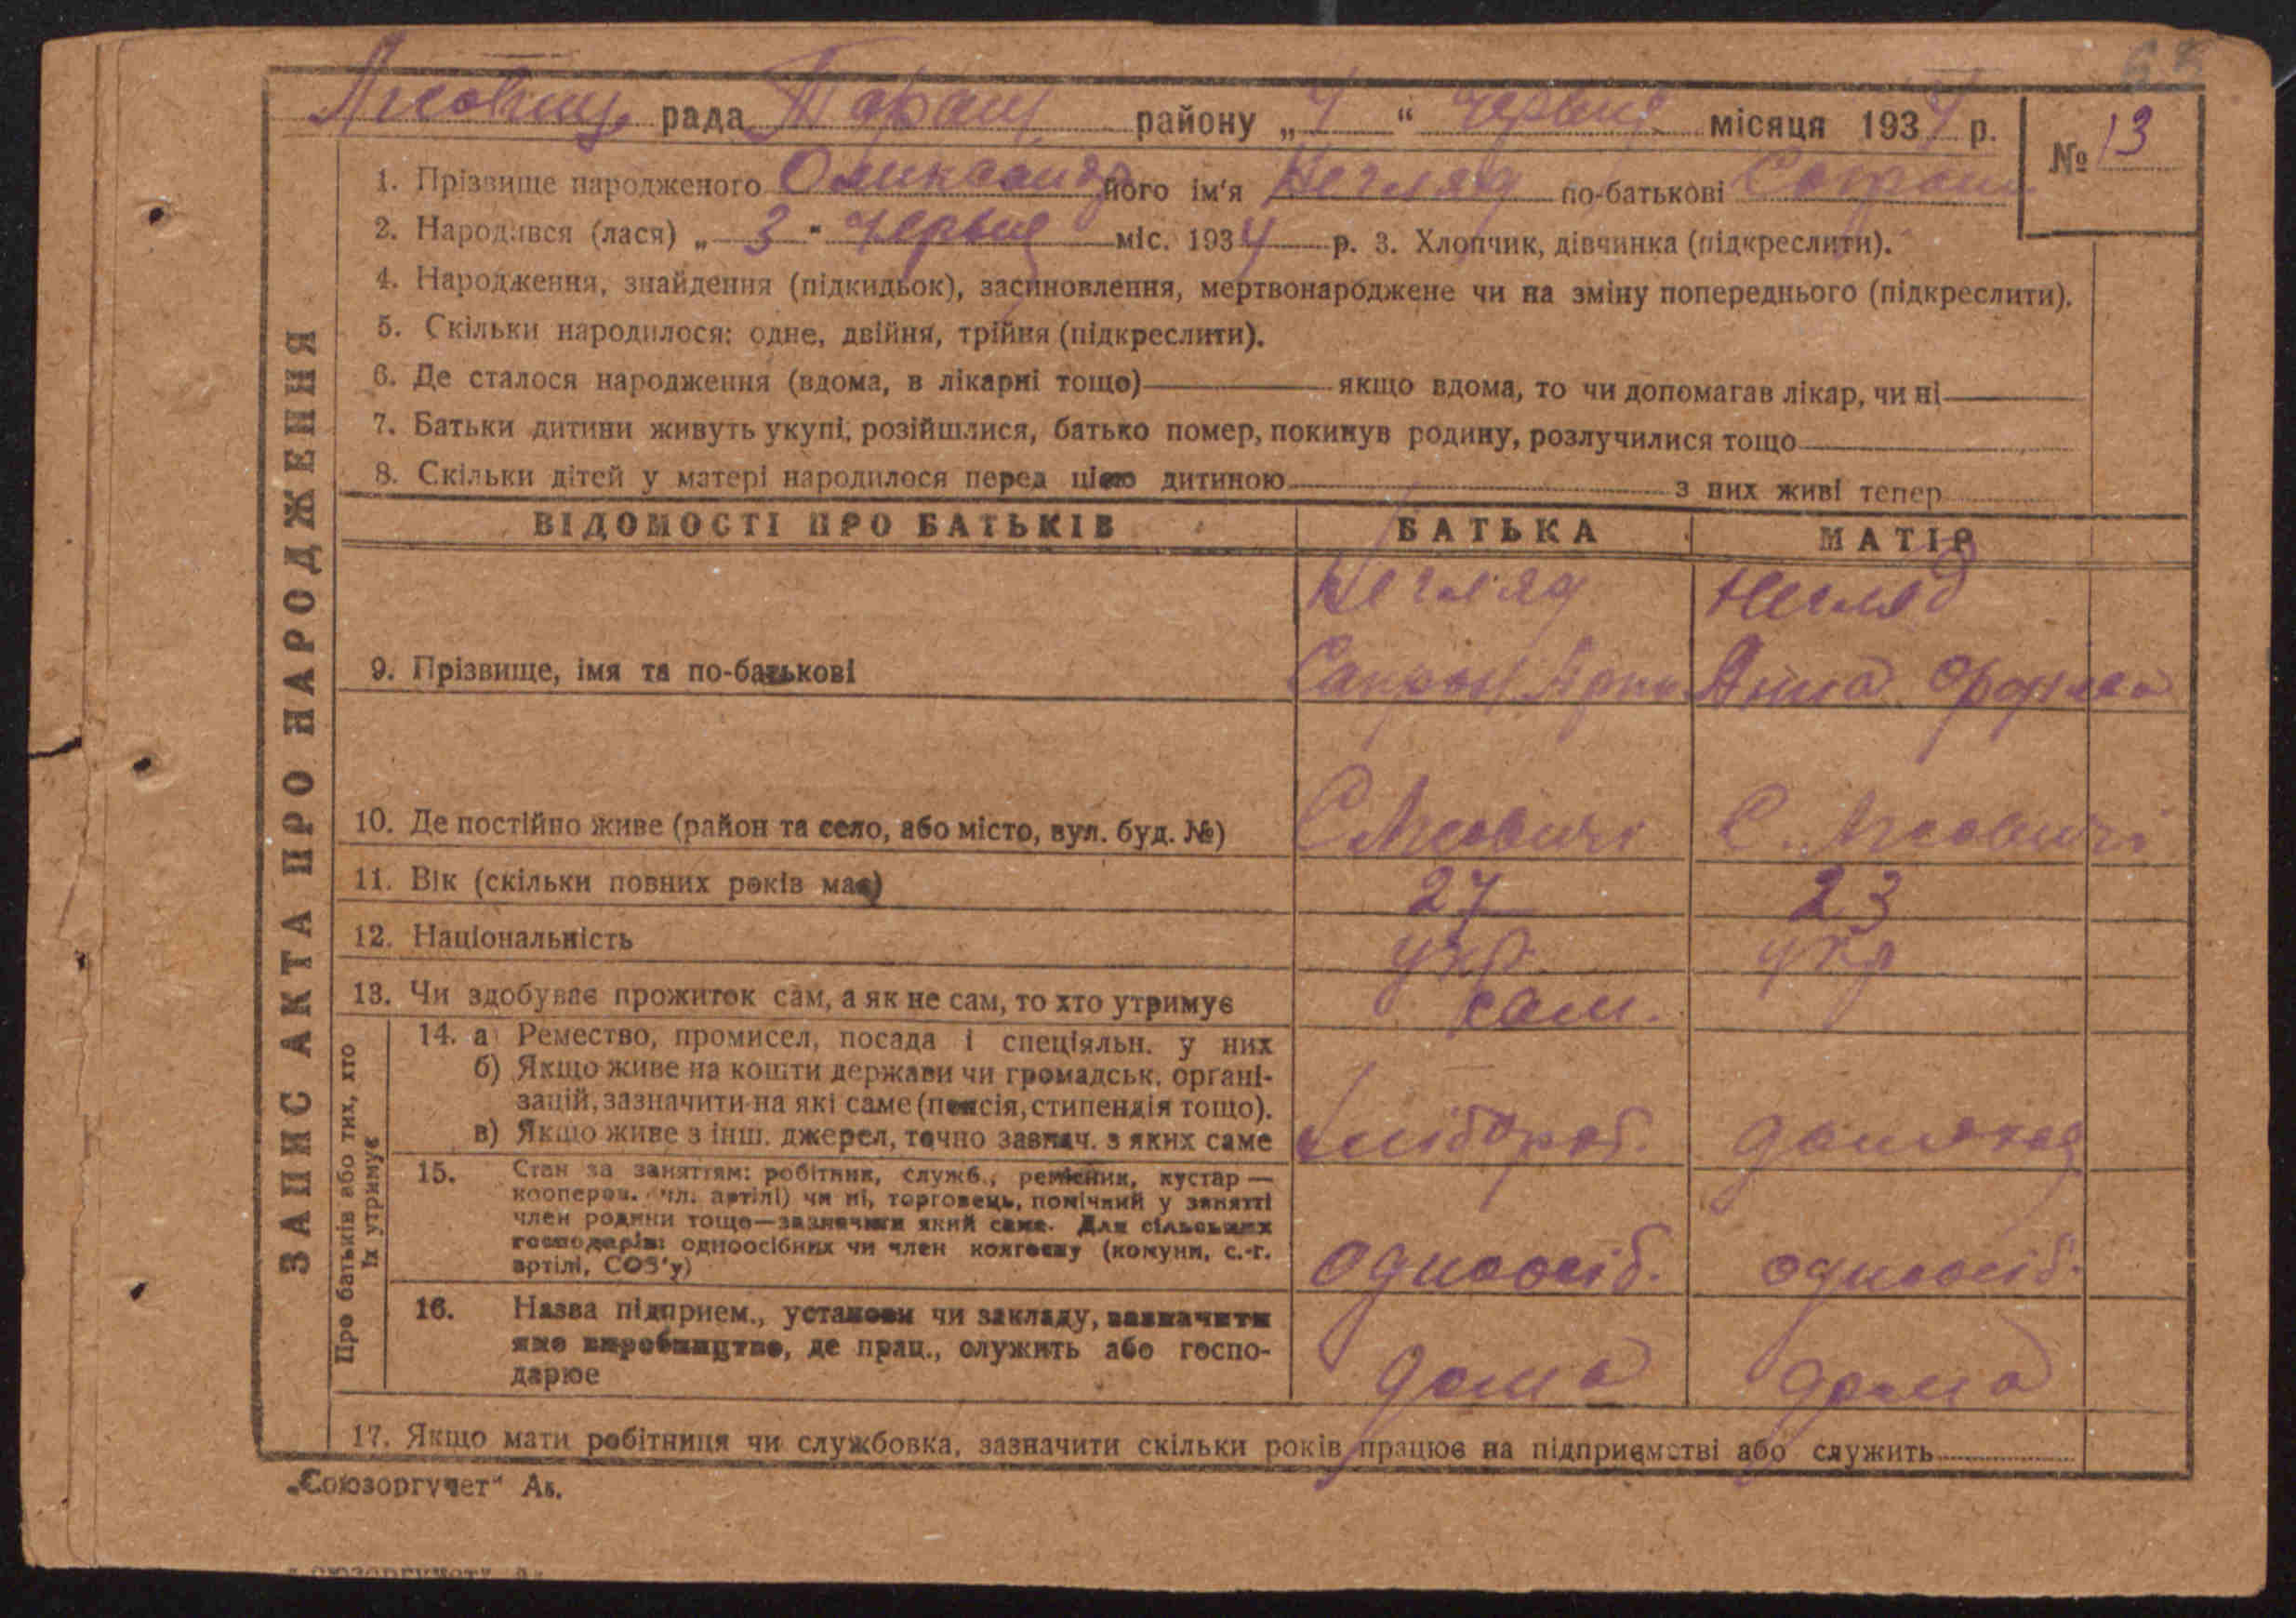 Лісовиц. рада Таращ району „4“ червня місяця 1934 р. № 13
1. Прізвище народженого Олександр його ім'я Негляд по-батькові
2. Народився (лася) „3“ червня міс. 1934 р. 3. Хлопчик, дівчинка (підкреслити).
4. Народження, знайдення (підкидьок), засиновлення, мертвонароджене чи на зміну попереднього (підкреслити).
5. Скільки народилося: одне, двійня, трійня (підкреслити).
6. Де сталося народження (вдома, в лікарні тощо) якщо вдома, то чи допомагав лікар, чи ні
7. Батьки дитини живуть укупі, розійшлися, батько помер, покинув родину, розлучилися тощо
8. Скільки дітей у матері народилося перед цією дитиною з них живі тепер
ЗАПИС АКТА ПРО НАРОДЖЕННЯ
ВІДОМОСТІ ПРО БАТЬКІВ БАТЬКА МАТІР
Негляд Негляд
9. Прізвище, імя та по-батькові Анна
10. Де постійно живе (район та село, або місто, вул. буд. №) С Лісовичі С. Лісовичі
11. Вік (скільки повних років має) 27 23
12. Національність укр. укр
13. Чи здобуває прожиток сам, а як не сам, то хто утримує сам.
Про батьків або тих, хто
їх утримує
14. а Ремество, промисел, посада і спеціяльн. у них
б) Якщо живе на кошти держави чи громадськ. органі-
зацій, зазначити на які саме (пенсія, стипендія тощо).
в) Якщо живе з інш. джерел, точно зазнач. з яких саме хлібороб.
15. Стан за заняттям: робітник, служб., ремісник, кустар —
кооперов. чл. артілі) чи ні, торговець, помічний у занятті
член родини тощо—зазначити який саме. Для сільських
господарів: одноосібних чи член колгоспу (комуни, с.-г.
артілі, СОЗ'у) одноосіб. одноосіб.
16. Назва підприєм., установи чи закладу, зазначити
яке виробництво, де прац., служить або госпо-
дарює дома дома
17. Якщо мати робітниця чи службовка, зазначити скільки років працює на підприємстві або служить
„Союзоргучет“ Ак.